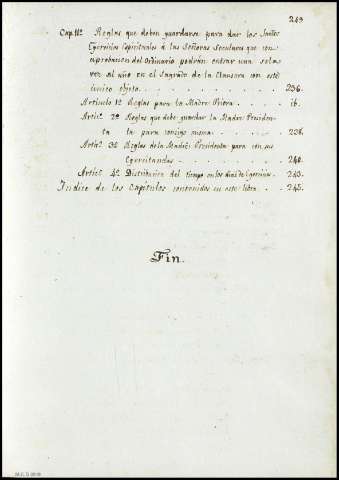 249
Cap. 11º Reglas que deben guardarse para dar los Santos
Egercicios Espirituales á las Señoras Seculares que con
aprobacion del Ordinario podrán entrar una sola
vez al año en el sagrado de la Clausura con este
único objeto . . . . . . . . . . 236.
Articulo 1º Reglas para la Madre Priora . . . . ib.
Artic.º 2º Reglas que debe guardar la Madre Presiden-
ta para consigo misma . . . . . . . 238.
Artic.º 3º Reglas de la Madre Presidenta para con sus
Egercitandas . . . . . . . . 240.
Artic.º 4º Distribucion del tiempo en los dias de Egercicios . 243.
Indice de los Capitulos contenidos en este libro . . . 245.
Fin.